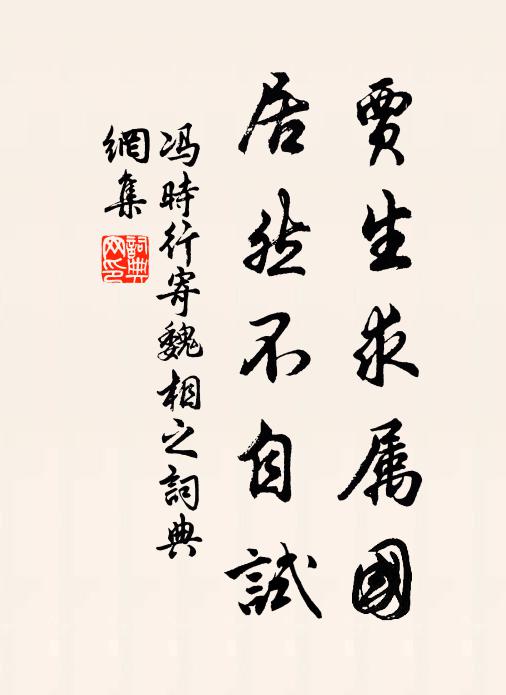 賈生求属國
居然不自試
冯時行寄魏相之詞典
網集
詞典
网印